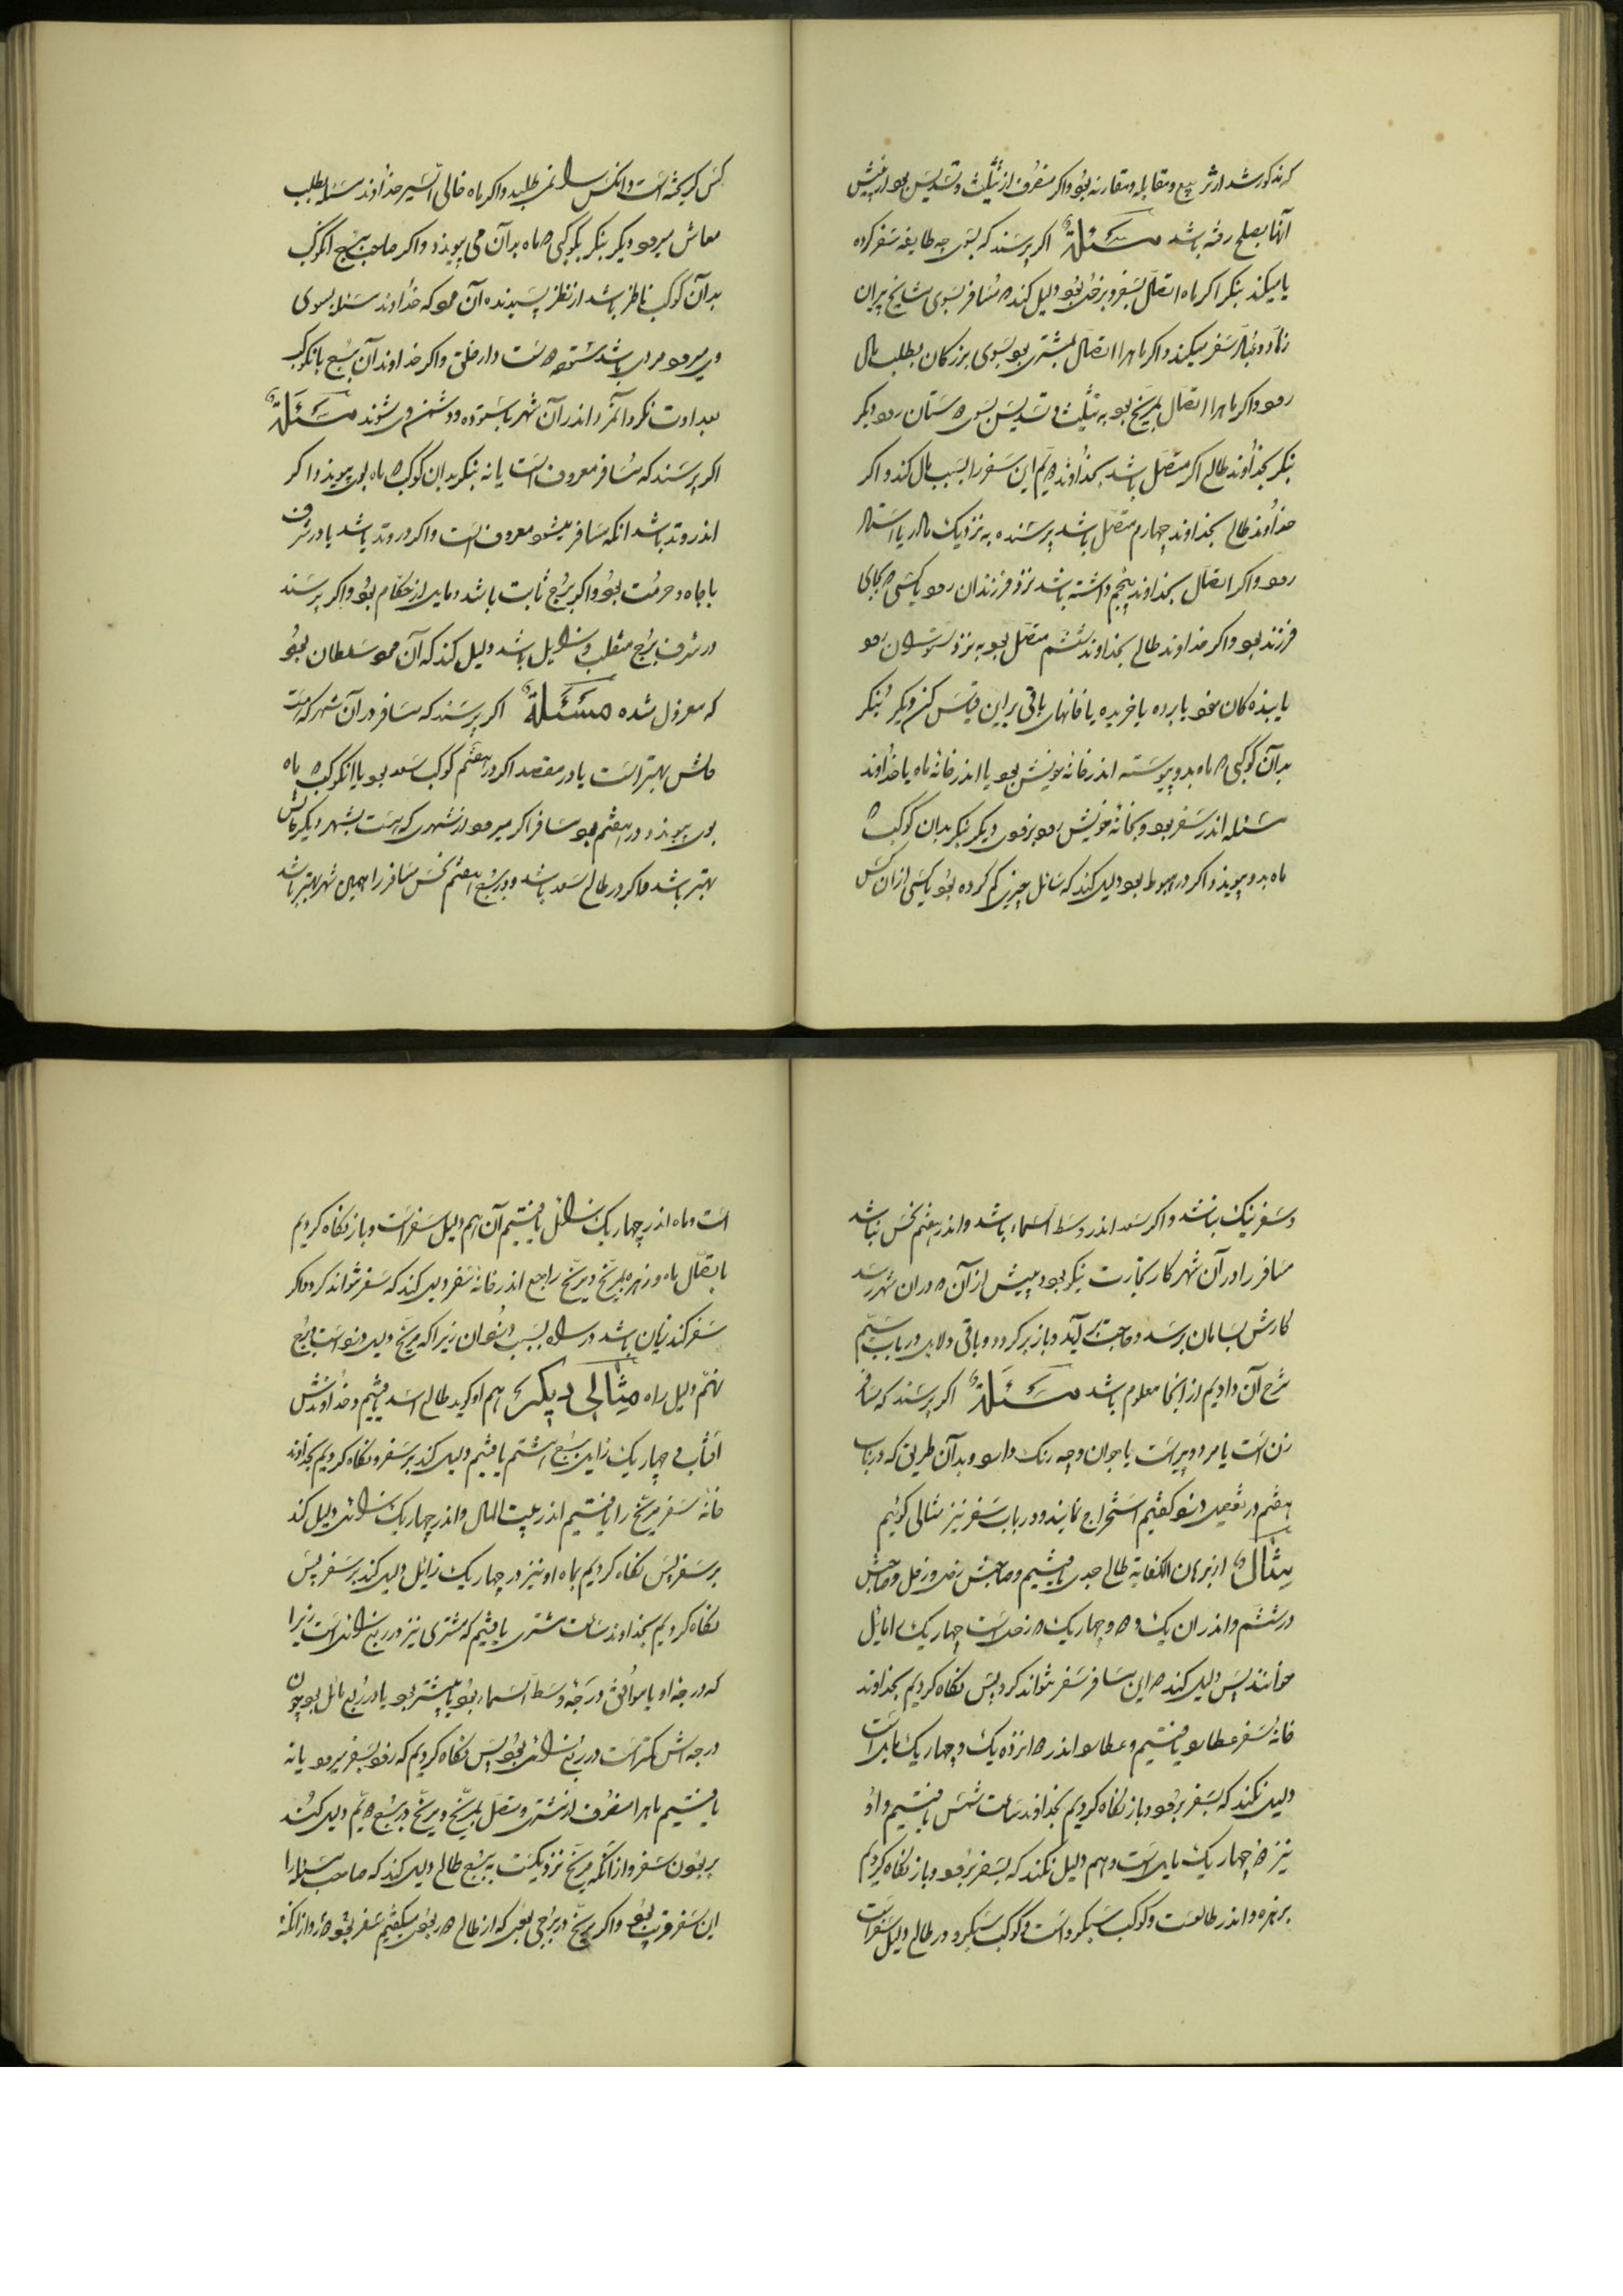 که مذکور شد از تربیع و مقابله و مقارنه بود و اکر منصرف از تثلیث و تسدیس بود از پیش
آنها بصلح رفته باشد مسئلة اکر پرسند که بسوی چه طایفه سفر کرده
یا میکند بنکر اکر ماه اتصال بسفر و بزحل بود دلیل کند که مسافر بسوی مشایخ پیران
زهاد و عباد سفر میکند و اکر ماه را اتصال بمشتری بود بسوی بزرکان بطلب مال
رود و اکر ماه را اتصال بمریخ بود به تثلیث و تسدیس بسوی دوستان رود دیکر
بنکر بخداوند طالع اکر متصل باشد بخداوند دویم این سفر را بسبب مال کند و اکر
خداوند طالع بخداوند چهارم متصل باشد پرسنده به نزدیک مادر یا
رود و اکر اتصال بخداوند پنجم داشته باشد نزد فرزندان رود یا کسی که بجای
فرزند بود و اکر خداوند طالع بخداوند ششم متصل بود به نزد ستوران رود
یا بنده کان خود یا برده یا خریده یا خانهای باقی بر این قیاس کن دیکر بنکر
بدآن کوکبی که ماه بدو پیوسته اندر خانه خویش بود یا اندر خانه ماه یا خداوند
مسئله اندر سفر بود و بخانه خویش رود بزودی دیکر بنکر بدان کوکب که
ماه بدو پیوندد اکر در هبوط بود دلیل کند که سائل چیزی کم کرده بود یا کسی از آن کس
کس کریخته است و آنکس را نمی طلبد و اکر ماه خالی السیر خداوند مسئله بطلب
معاش میرود دیکر بنکر بکوکبی که ماه بدآن می پیوندد و اکر صاحب برج آنکوکب
بدآن کوکب ناظر باشد از نظر پسندیده آن مرد که خداوند مسئله بسوی
وی میرود مردی باشد ستوده است دارد خلق و اکر خداوند آن برج بآنکوکب
بعداوت نکرد آنمرد اندر آن شهر ناستوده و دشمن وی شوند مسئلة
اکر پرسند که مسافر معروف است یا نه بنکر بدان کوکب که ماه بوی پیوندد اکر
اندر وتد باشد آنکه مسافر میشود معروف است و اکر در وتد باشد یا در شرف
با جاه و حرمت بود و اکر برج ثابت باشد از حکام بود و اکر پرسند
در شرف برج منقلب و زایل باشد دلیل کند که آن مرد سلطان بود
که معزول شده مسئلة اکر پرسند که مسافر در آن شهر که هست
حالش بهتر است یا در مقصد اکر در هفتم کوکب سعد بود یا آنکوکب که ماه
بوی پیوندد در هفتم بود مسافر اکر میرود از شهری که هست بشهر دیکر حالش
بهتر باشد و اکر در طالع سعد باشد و در برج هفتم نحس مسافر را همین شهر بهتر باشد
و سفر نیک باشد و اکر سعد اندر وسط السماء باشد و اندر هفتم نحس نباشد
مسافر را در آن شهر کار تجارت نیکو بود و پیش از آن که در ان شهر رسد
کارش بسامان برسد و حاجت بر آید و باز بر کردد و باقی دلایل در باب سیم
شرح آن دادیم از آنجا معلوم باشد مسئلة اکر پرسند که مسافر
زن است یا مرد و پیر است یا جوان و چه رنک دارد بدآن طریق که در باب
هفتم در تفصیل دزد کفتیم استخراج نمایند و در باب سفر نیز مثالی کوئیم
مثال از برهان الکفایه طالع جدی یافتیم و صاحبش زحل و زحل و صاحبش
در ششم و اندر ان یک و چهار یک که زحل است چهار یک را مایل
خوانند پس دلیل کند که این مسافر سفر نتواند کرد پس نکاه کردیم بخداوند
خانه سفر عطارد یافتیم و عطارد اندر دوازده یک و چهار یک مایل است
دلیل نکند که بسفر برود و باز نکاه کردیم بخداوند ساعت شمس یافتیم و او
نیز در چهار یک مایل است و هم دلیل نکند که بسفر برود و باز نکاه کردیم
بر زهره و اندر طالعست و کوکب سبکرو است و کوکب سبکرو در طالع دلیل سفر است
است و ماه اندر چهار یک زائل یافتیم آن هم دلیل سفر است و باز نکاه کردیم
باتصال ماه و زهره بمریخ و مریخ راجع اندر خانه سفر دلیل کند که سفر نتواند کرد و اکر
سفر کند زیان باشد در راه بسبب دزدان زیرا که مریخ دلیل دزد است و برج
نهم دلیل راه مثالی دیکر هم او کوید طالع اسد یافتیم و خداوندش
آفتاب و چهار یک زایل برج هشتم یافتیم دلیل کند بر سفر و نکاه کردیم بخداوند
خانه سفر مریخ را یافتیم اندر بیت المال و اندر چهار یک زائل دلیل کند
بر سفر پس نکاه کردیم بماه او نیز در چهار یک زائل دلیل کند بر سفر پس
نکاه کردیم بخداوند ساعت مشتری یافتیم که مشتری نیز در ربع زائل است زیرا
که درجه او یا موافق درجه وسط السماء بود یا بیشتر بود یا در ربع مائل بود چون
درجه اش کمتر است در ربع زائل بود پس نکاه کردیم که زود بسفر میرود یا نه
یافتیم ماه را منصرف از مشتری و متصل بمریخ و مریخ در برج دویم دلیل کند
بر بودن سفر و از آنکه مریخ نزدیکست به برج طالع دلیل کند که صاحب مسئله را
این سفر قریب بود و اکر مریخ در برجی بودی که از طالع دور بودی میکفتیم سفر بعید دارد از آنکه